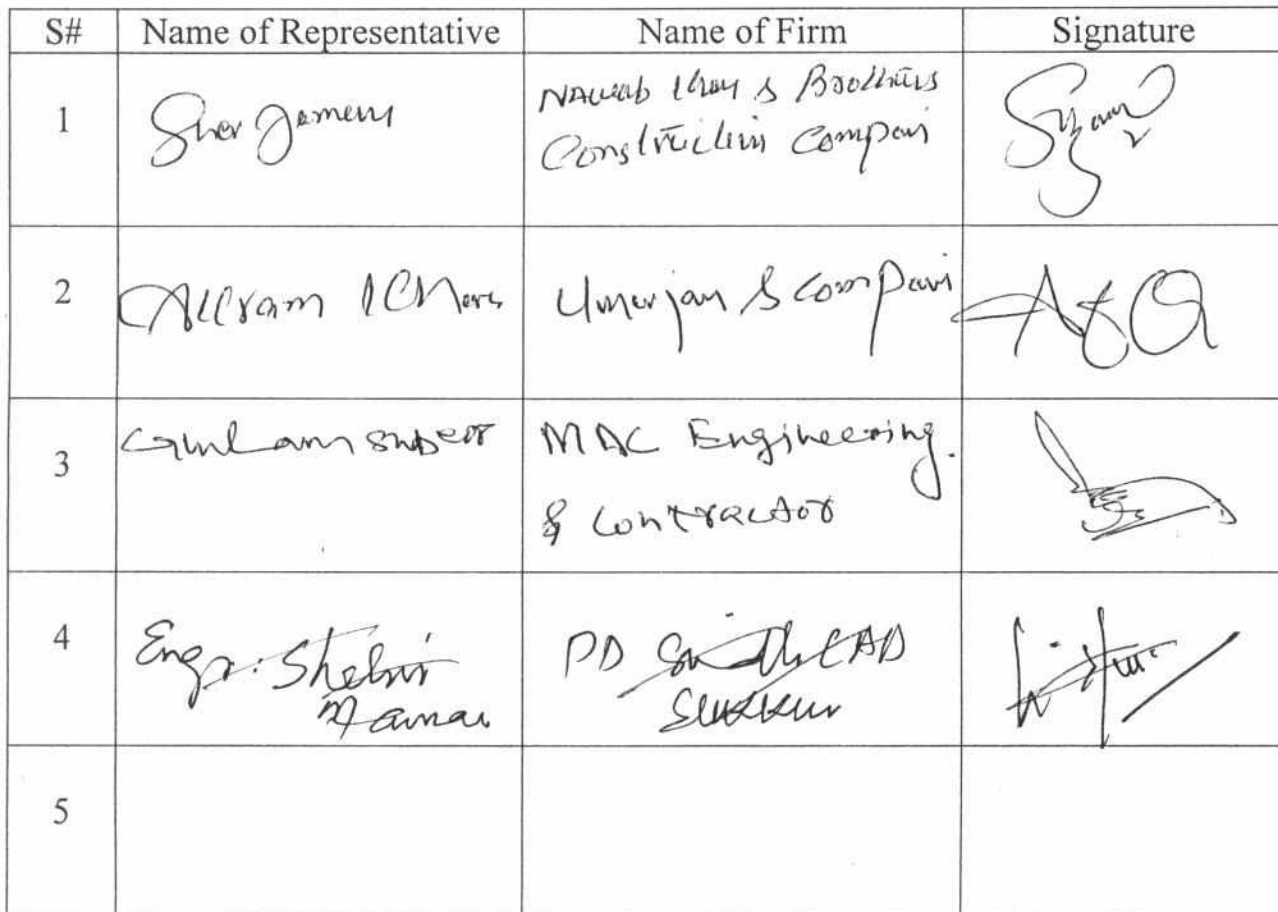 S# Name of Representative Name of Firm Signature
1 Sher Jamen Nawab Khan & Brothers
Construction Company
2 Akram Khan Umerjan & Company
3 Ghulam Shabeer MAC Engineering
& Contractor
4 Engr: PD CAD
Sukkur
5